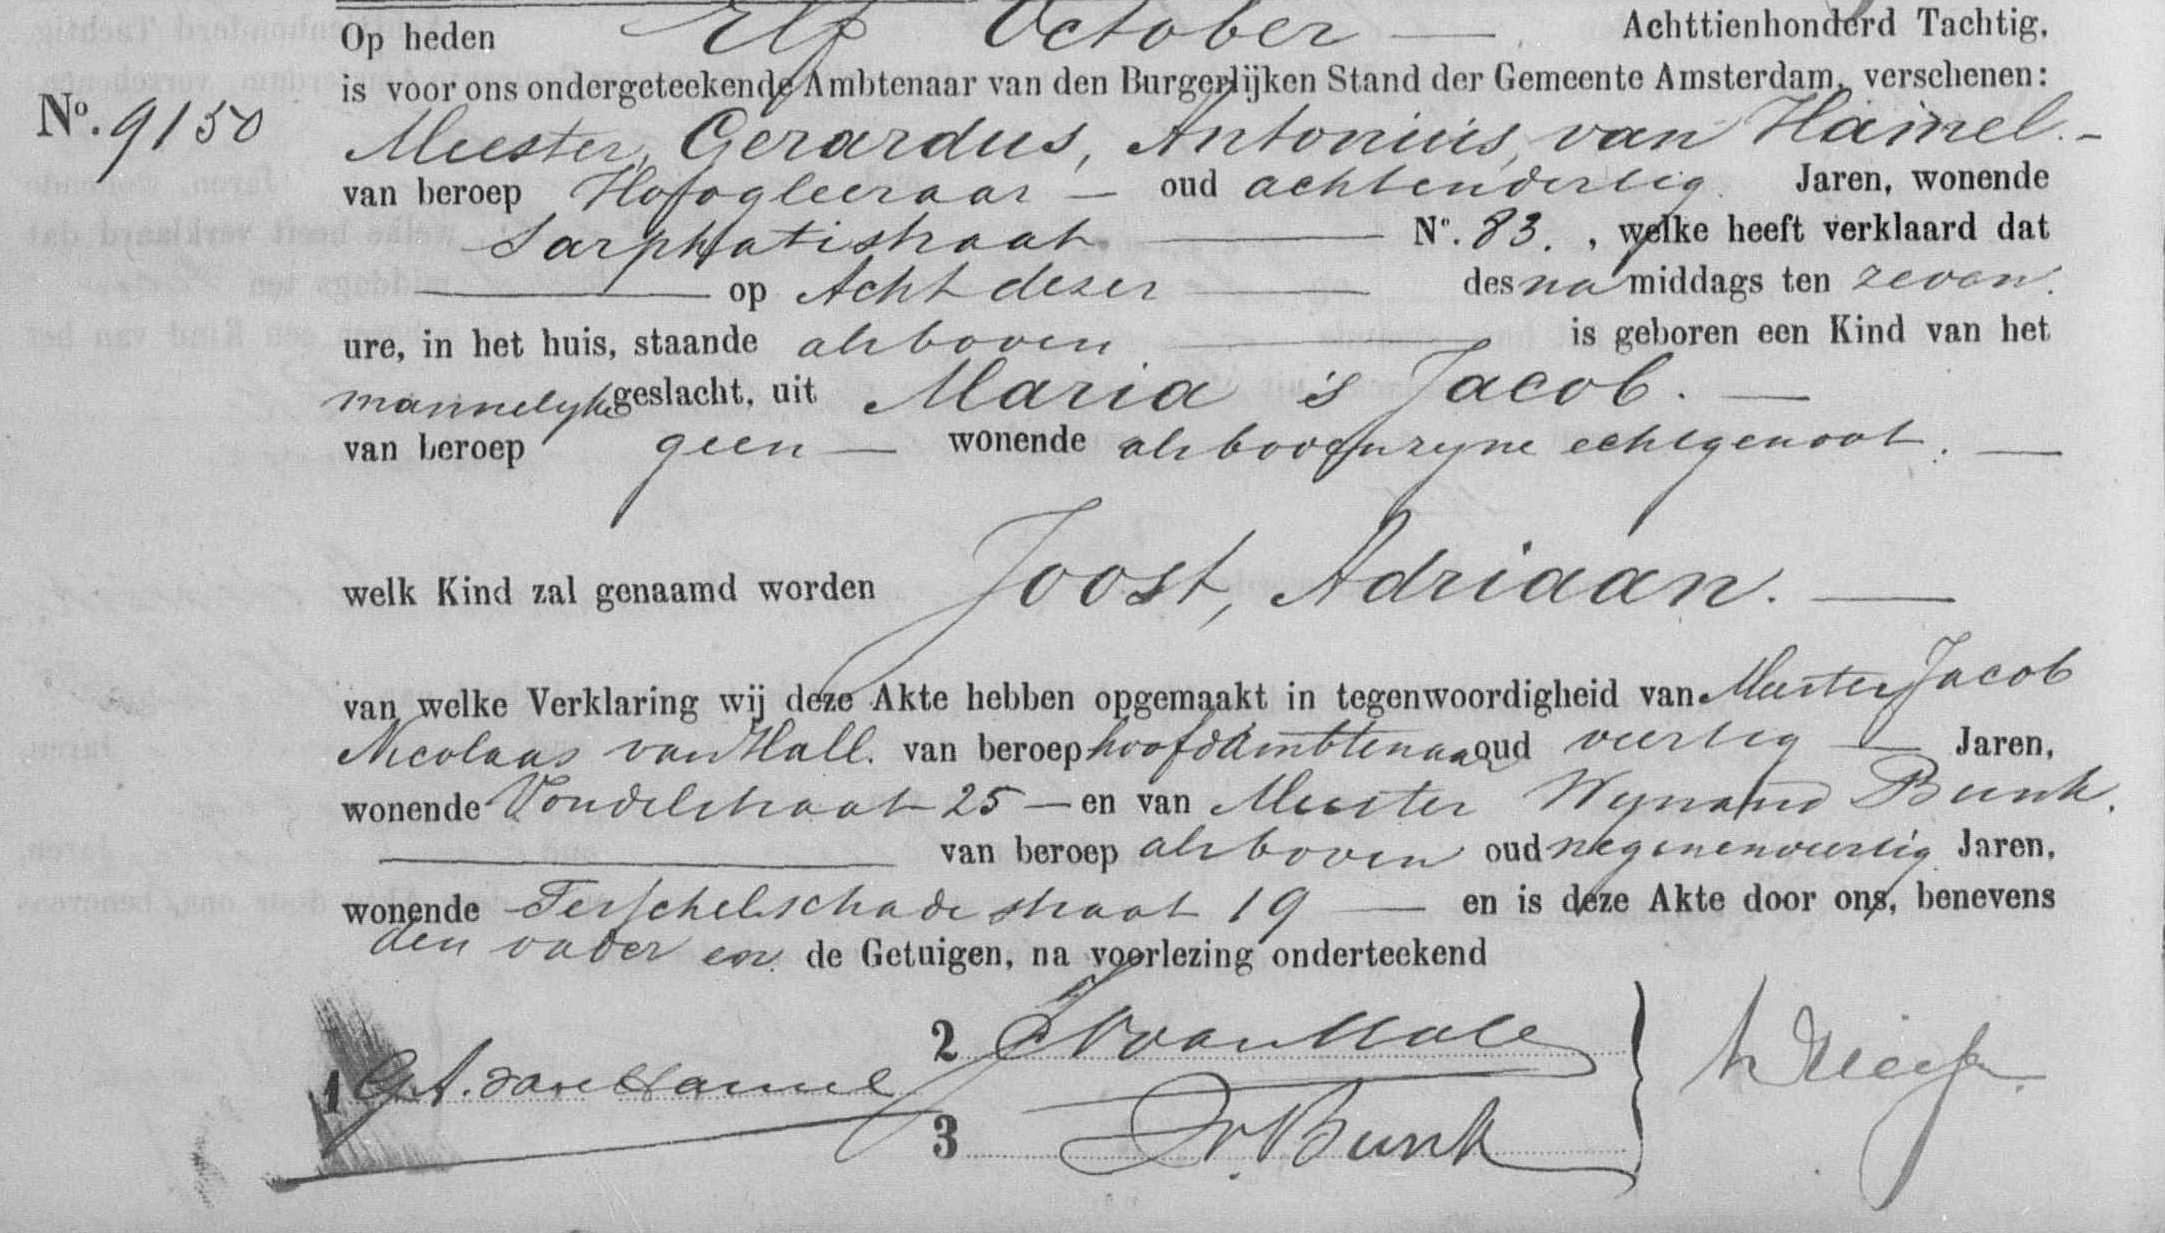 Op heden Elf October — Achttienhonderd Tachtig,
is voor ons ondergeteekende Ambtenaar van den Burgerlijken Stand der Gemeente Amsterdam, verschenen:
No. 9150
Meester, Gerardus, Antonius, van Hamel. -
van beroep Hofogleeraar — oud achtendertig Jaren, wonende
Sarphatistraat. — No. 83. , welke heeft verklaard dat
— op Acht dezer — des na middags ten zeven.
ure, in het huis, staande als boven — is geboren een Kind van het
mannelyke geslacht, uit Maria 's Jacob. —
van beroep geen — wonende als boven zyne echtgenoot. —
welk Kind zal genaamd worden Joost, Adriaan. —
van welke Verklaring wij deze Akte hebben opgemaakt in tegenwoordigheid van Meester Jacob
Nicolaas van Hall. van beroep hoofdambtenaar oud veertig — Jaren,
wonende Vondelstraat 25 — en van Meester Wynand Bunk.
— van beroep als boven oud negenenveertig Jaren,
wonende Tesschelschade straat 19 — en is deze Akte door ons, benevens
den vader en de Getuigen, na voorlezing onderteekend
1 G A. van Hamel
2 J N van Hall
3 W. Bunk